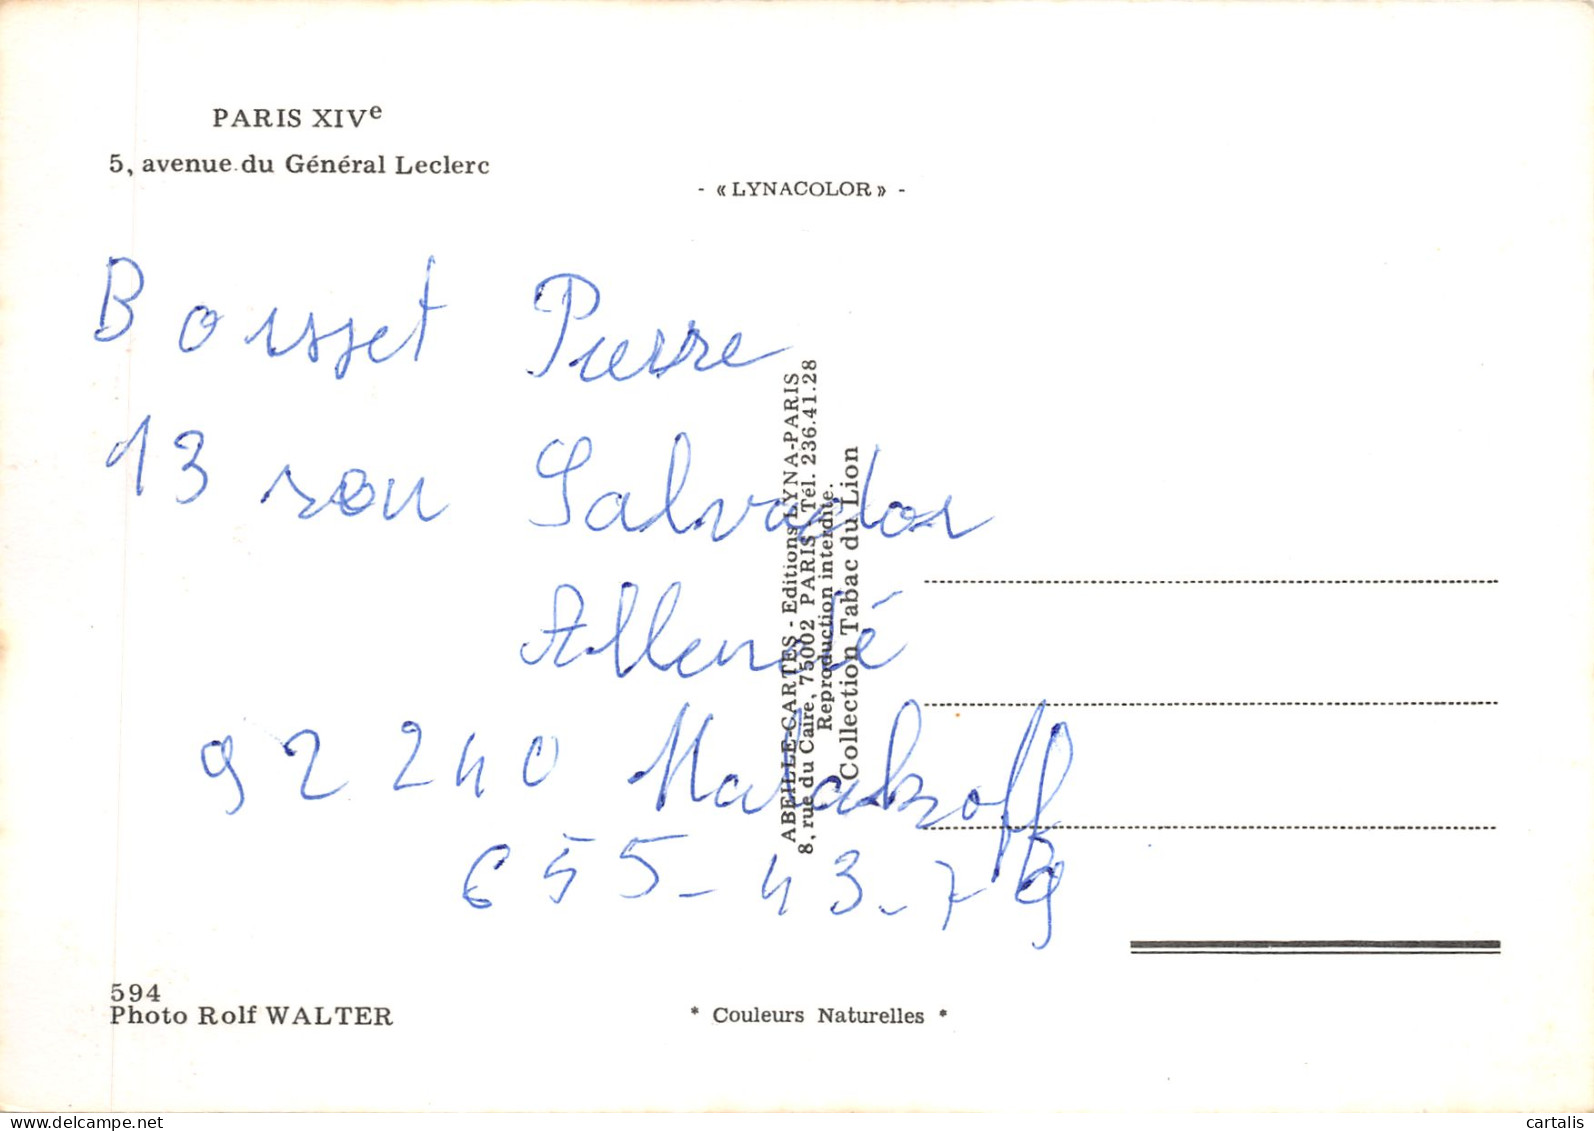 PARIS XIVe
5, avenue du Général Leclerc
- « LYNACOLOR » -
Boisset Pierre
13 rou Salvador
Allendé
92240 Malakoff
655-43-79
ABEILLE-CARTES - Editions LYNA-PARIS
8, rue du Caire, 75002 PARIS Tél. 236.41.28
Reproduction interdite.
Collection Tabac du Lion
594
Photo Rolf WALTER
* Couleurs Naturelles *
cartalis
www.delcampe.net